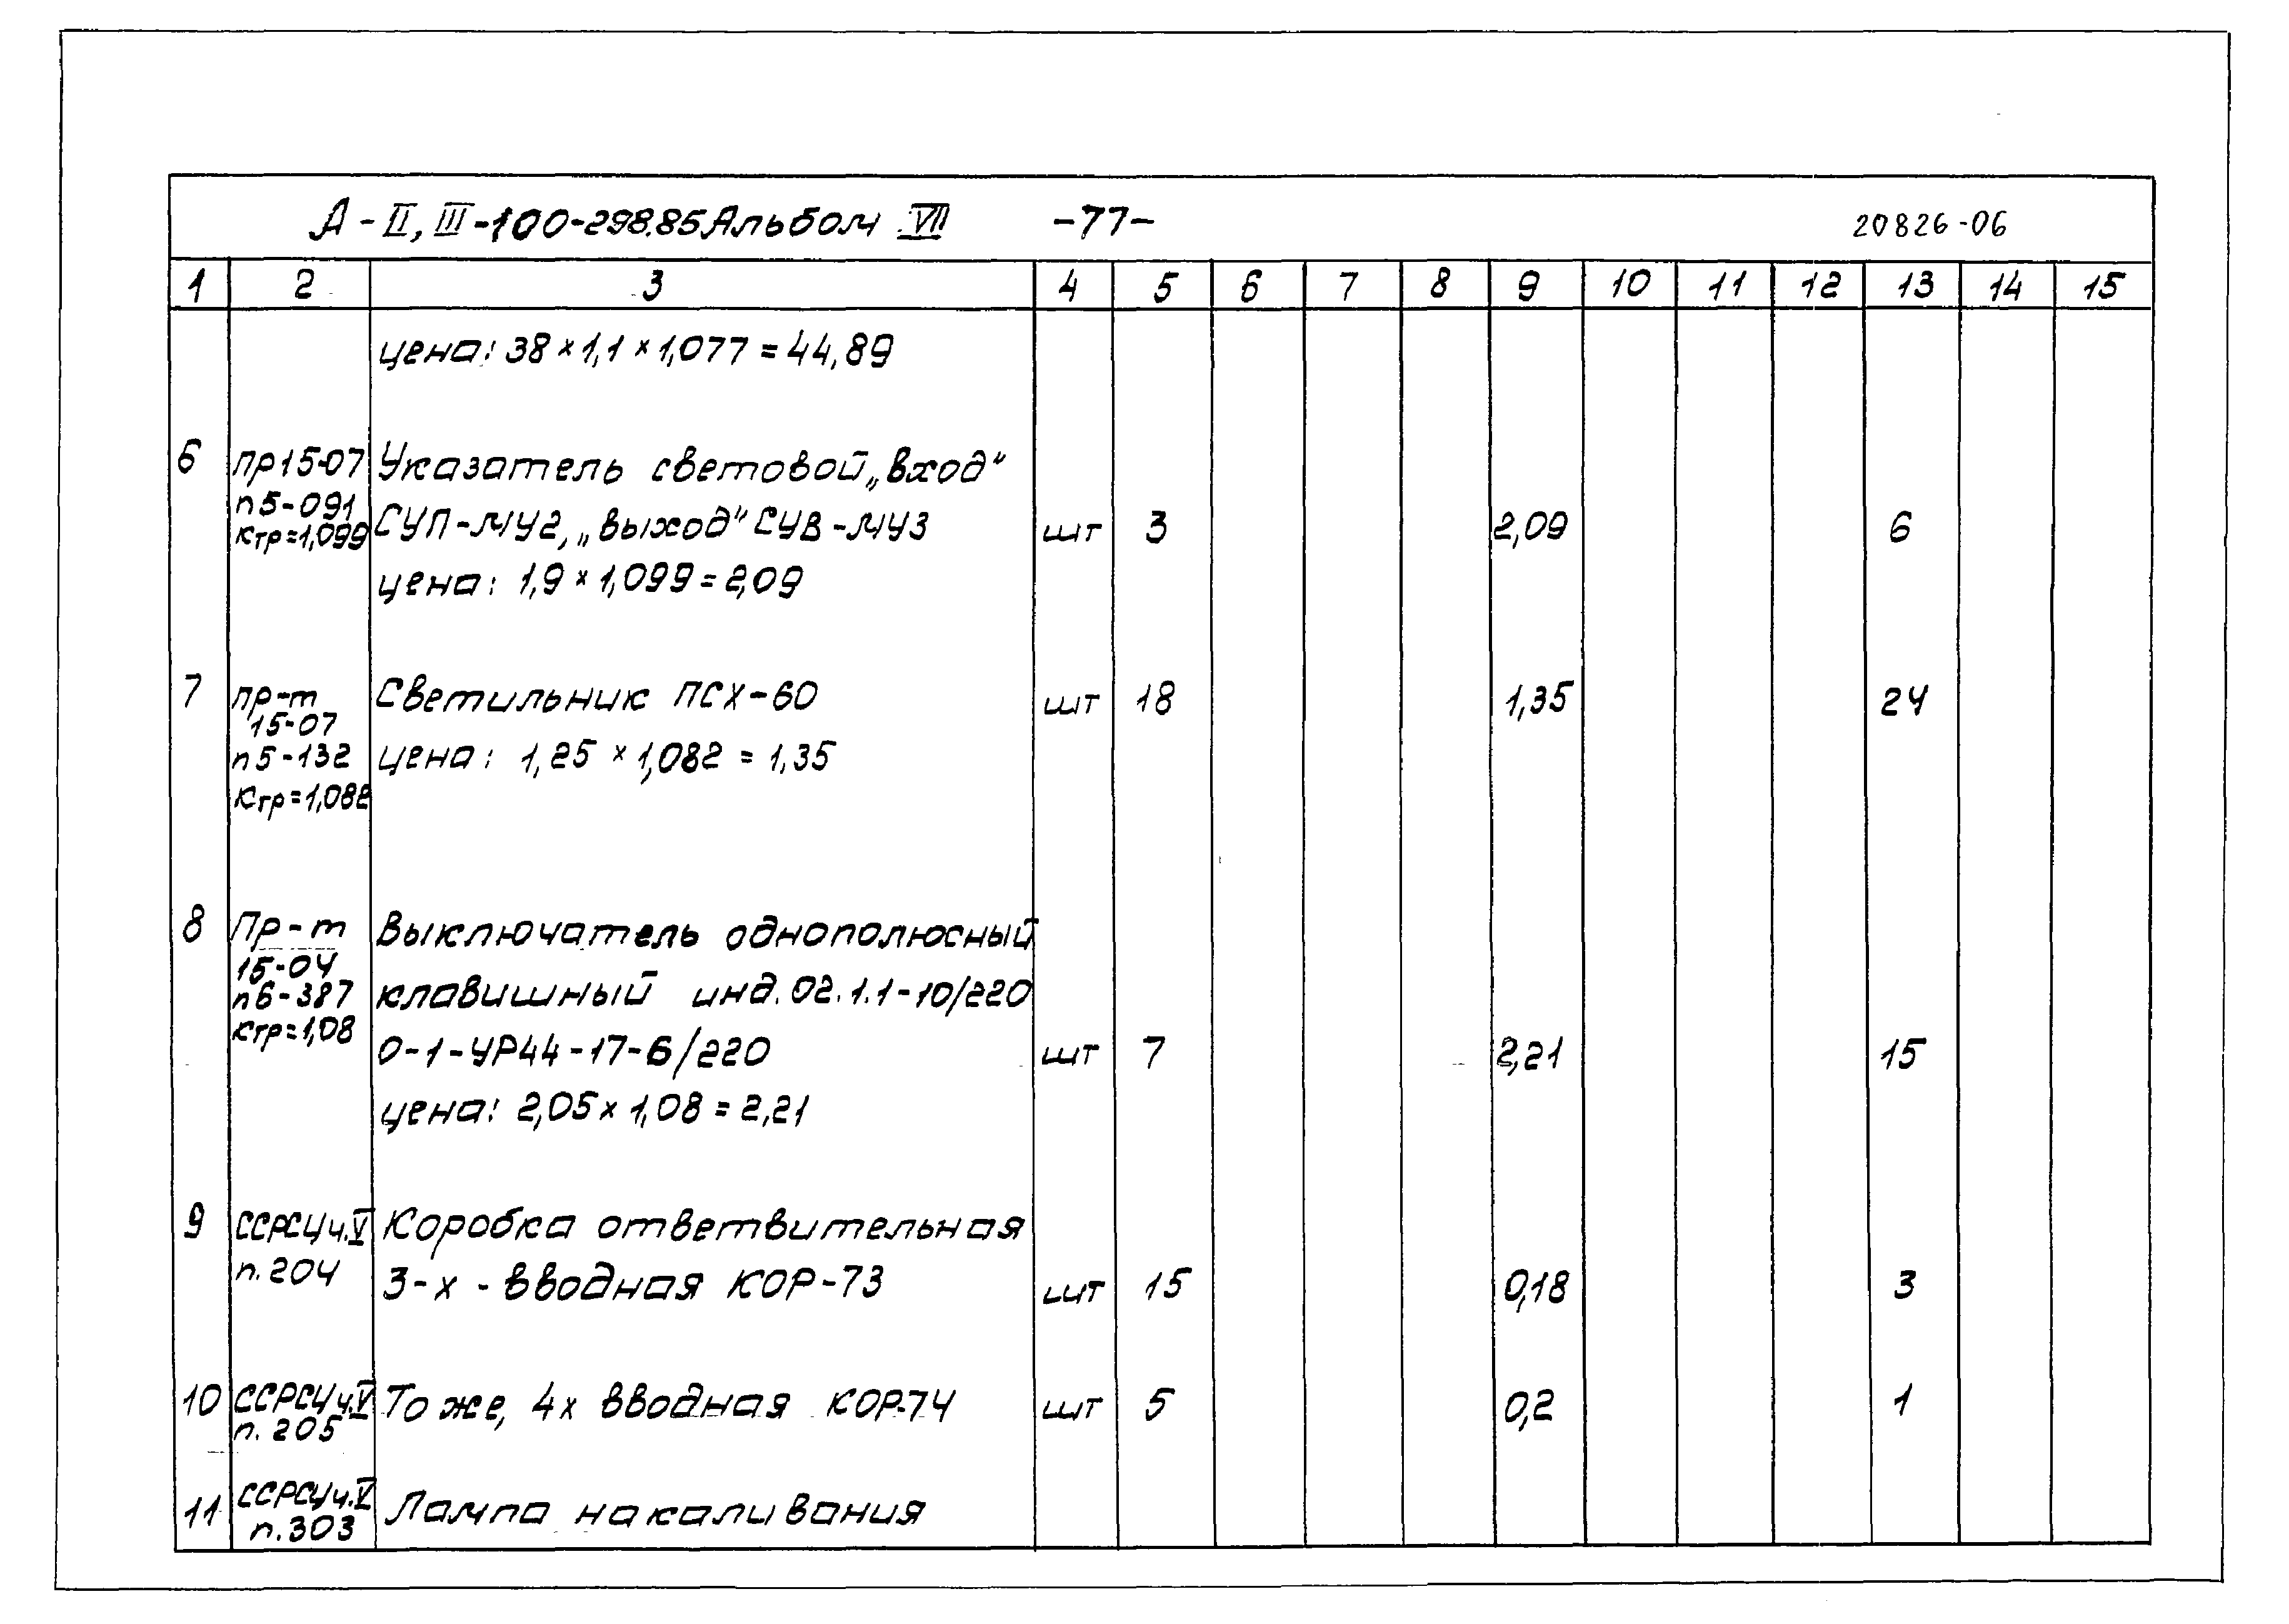 А-II, III-100-298.85 Альбом VII -77- 20826-06
1 2 3 4 5 6 7 8 9 10 11 12 13 14 15
цена: 38 × 1,1 × 1,077 = 44,89
6 пр15-07 Указатель световой „вход"
п5-091 СУП-МУ2, „выход" СУВ-МУ3 шт 3 2,09 6
Ктр=1,099
цена: 1,9 × 1,099 = 2,09
7 пр-т Светильник ПСХ-60 шт 18 1,35 24
15-07
п5-132 цена: 1,25 × 1,082 = 1,35
Ктр=1,082
8 Пр-т Выключатель однополюсный
15-04
п6-387 клавишный инд. 02.1.1-10/220
Ктр=1,08
0-1-УР44-17-6/220 шт 7 2,21 15
цена: 2,05 × 1,08 = 2,21
9 ССРСЦ ч.V Коробка ответвительная
п.204 3-х - вводная КОР-73 шт 15 0,18 3
10 ССРСЦ ч.V То же, 4х вводная КОР-74 шт 5 0,2 1
п. 205
11 ССРСЦ ч.V Лампа накаливания
п.303